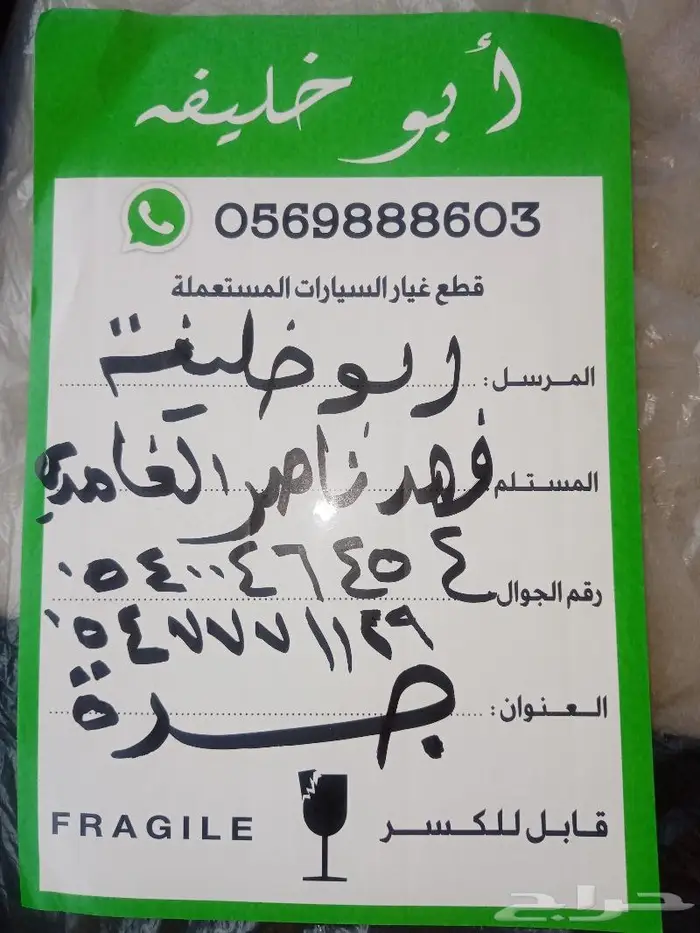 أبو خليفه
0569888603
قطع غيار السيارات المستعملة
المرسل : ابو خليفة
المستلم فهد ناصر الغامدي
رقم الجوال ٠٥٤٠٠٤٦٤٥٤
٠٥٤٧٧٧١١٢٩
العنوان : جدة
قابل للكسر FRAGILE
حراج